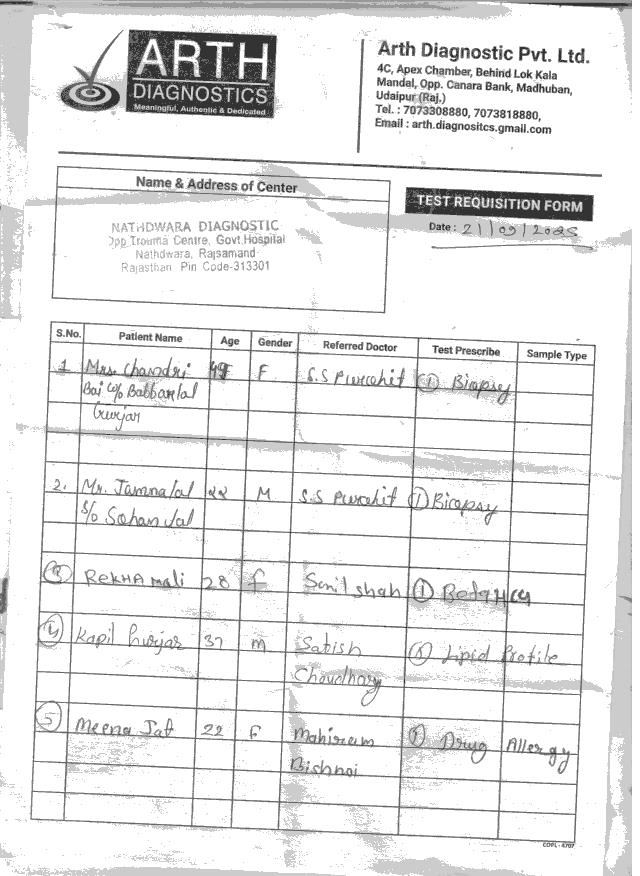 ARTH
DIAGNOSTICS
Meaningful, Authentic & Dedicated
Arth Diagnostic Pvt. Ltd.
4C, Apex Chamber, Behind Lok Kala
Mandal, Opp. Canara Bank, Madhuban,
Udaipur (Raj.)
Tel. : 7073308880, 7073818880,
Email : arth.diagnositcs.gmail.com
Name & Address of Center
NATHDWARA DIAGNOSTIC
Opp.Trouma Centre, Govt.Hospital
Nathdwara, Rajsamand
Rajasthan Pin Code-313301
TEST REQUISITION FORM
Date : 21/09/2025
S.No. Patient Name Age Gender Referred Doctor Test Prescribe Sample Type
1 Mrs. Chandri 49 F S.S Purohit ① Biopsy
Bai w/o Babbarlal
Gurjar
2. Mr. Jamnalal 22 M S.S Purohit ① Biopsy
s/o Sohan Lal
③ REKHA Mali 28 F Sunil shah ① Beta HCG
④ Kapil Gurjar 37 m Satish ① Lipid Profile
Choudhary
⑤ Meena Jat 22 F Mahiram ① Drug Allergy
Bishnoi
COPL - 4707